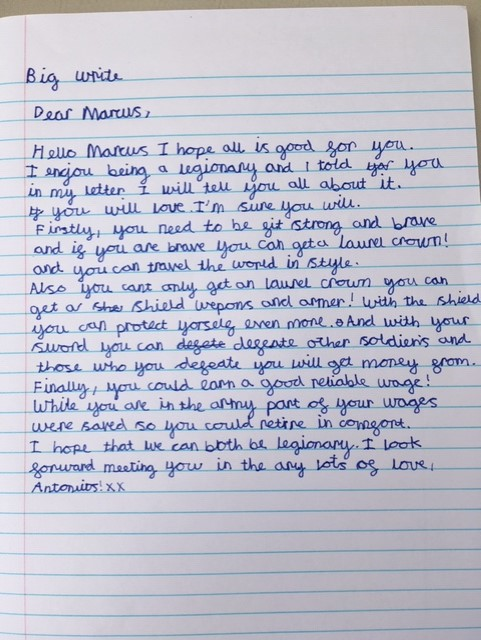 Big write
Dear Marcus,
Hello Marcus I hope all is good for you.
I enjou being a legionary and I told yor you
in my letter I will tell you all about it.
If you will love. I'm sure you will.
Firstly, you need to be fit strong and brave
and if you are brave you can get a laurel crown!
and you can travel the world in style.
Also you cant only get an laurel crown you can
get a sha shield wepons and armer! With the shield
you can protect yorself even more. And with your
sword you can defete defeate other soldiers and
those who you defeate you will get money from.
Finally, you could earn a good reliable wage!
While you are in the artmy part of your wages
were saved so you could retire in comfort.
I hope that we can both be legionary. I look
forward meeting you in the any lots of love,
Antonius! xx